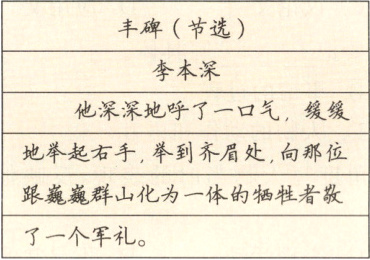 丰碑（节选）
李本深
他深深地呼了一口气，缓缓
地举起右手，举到齐眉处，向那位
跟巍巍群山化为一体的牺牲者敬
了一个军礼。